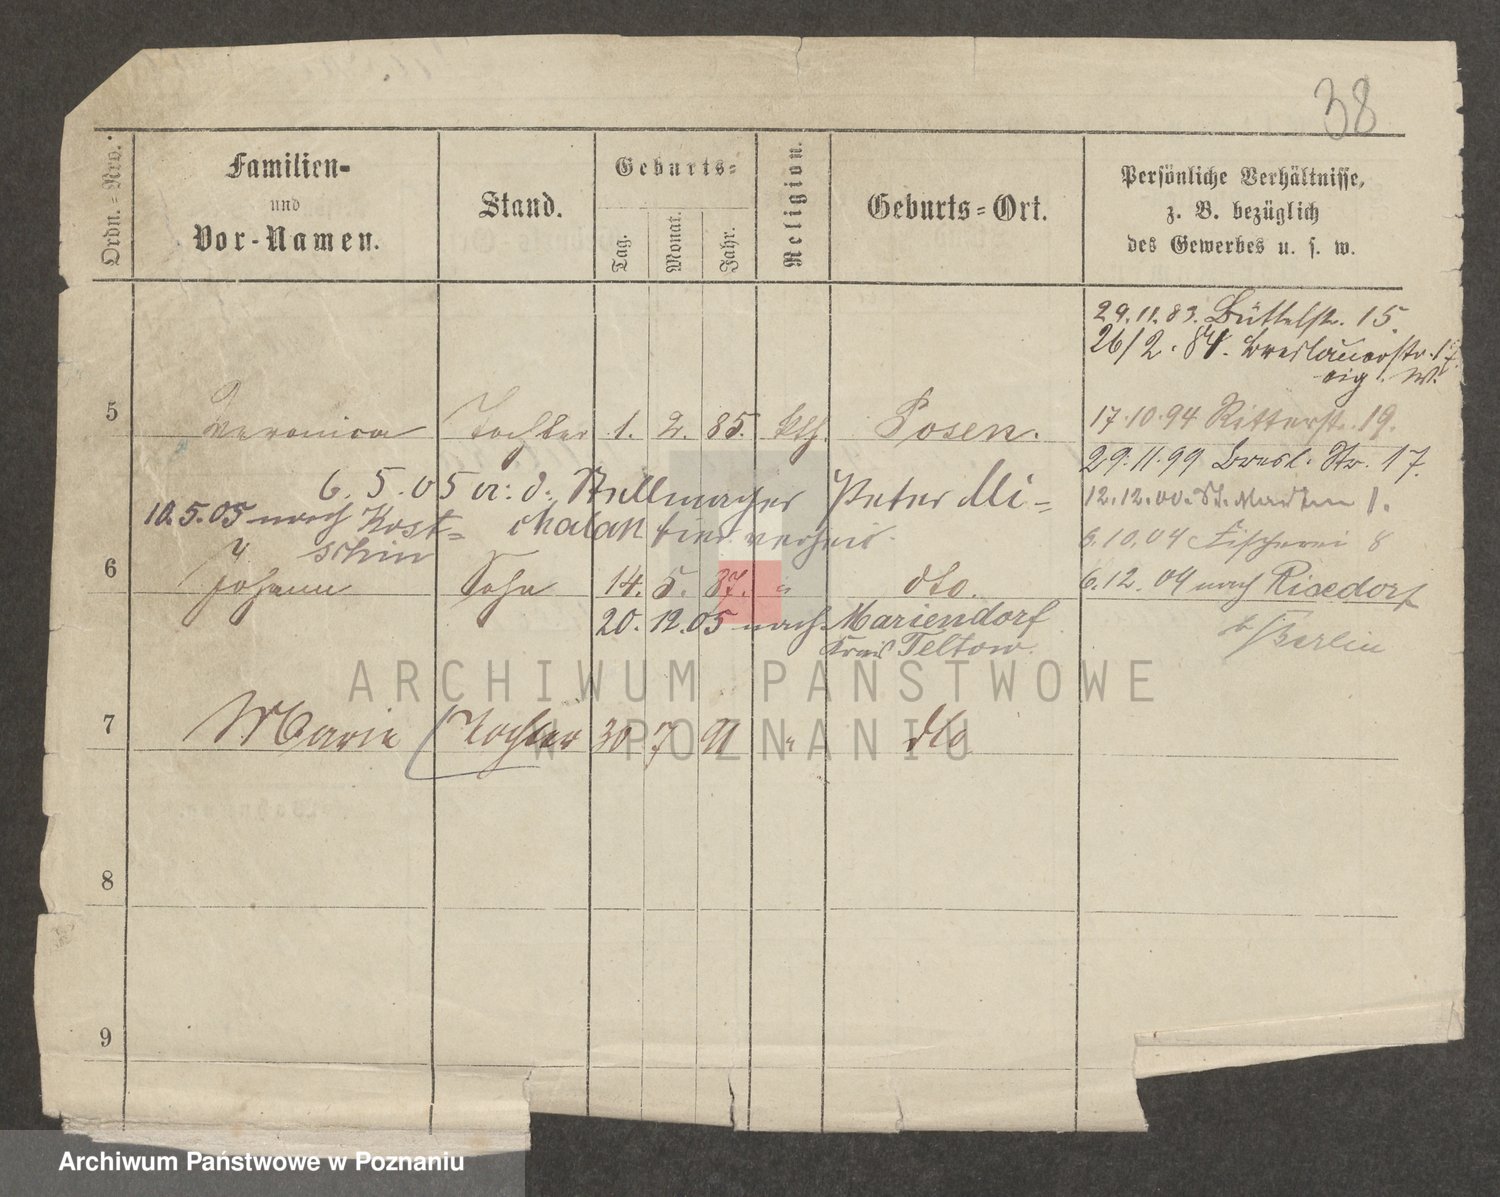 38
Ordn.=Nro.
Familien-
und
Vor-Namen.
Stand.
Geburts=
Tag.
Monat.
Jahr.
Religion.
Geburts=Ort.
Persönliche Verhältnisse,
z. B. bezüglich
des Gewerbes u. s. w.
29.11.83. Büttelstr. 15.
26/2. 84. Breslauerstr. 17
eig. W.
5 Veronica Tochter 1. 2. 85. kth. Posen.
17.10.94 Ritterstr. 19.
29.11.99 Bresl. Str. 17.
6. 5. 05 a. d. Stellmacher Peter Mi=
chalak hier verheir.
10.5.05 nach Kost=
schin
12.12.00. St. Martin 1.
6.10.04 Fischerei 8
6 Johann Sohn 14. 5. 87. " dto.
6.12.04 nach Rixdorf
b/Berlin
20.12.05 nach Mariendorf
Kreis Teltow.
7 Marie Tochter 30 7 91 " dto
8
9
ARCHIWUM PAŃSTWOWE
W POZNANIU
Archiwum Państwowe w Poznaniu